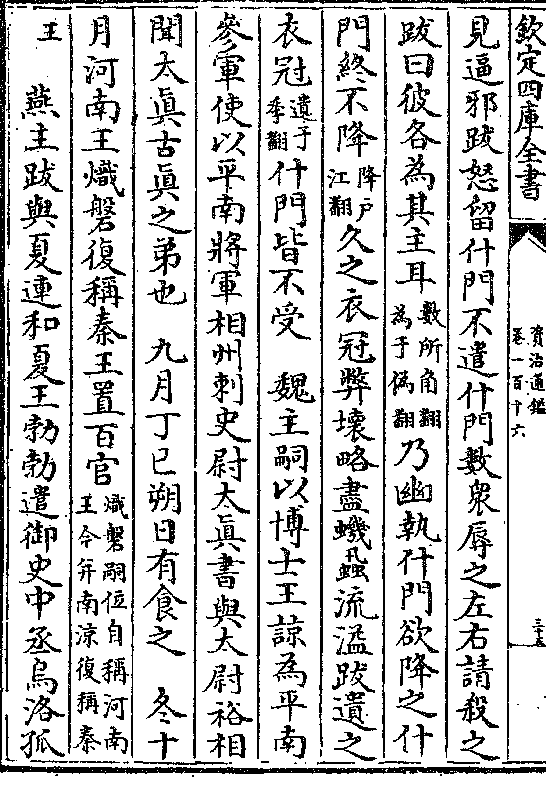 欽定四庫全書
資治通鑑
卷一百十六
三十五
見逼邪跋怒留什門不遣什門數衆辱之左右請殺之
跋曰彼各為其主耳數所角翻為于偽翻乃幽執什門欲降之什
門終不降降戶江翻久之衣冠弊壞略盡蟣蝨流溢跋遺之
衣冠遺于季翻什門皆不受　魏主嗣以博士王諒為平南
參軍使以平南將軍相州刺史尉太眞書與太尉裕相
聞太眞古眞之弟也　九月丁巳朔日有食之　冬十
月河南王熾磐復稱秦王置百官熾磐嗣位自稱河南王今年南涼復稱秦
王　燕主跋與夏連和夏王勃勃遣御史中丞烏洛孤